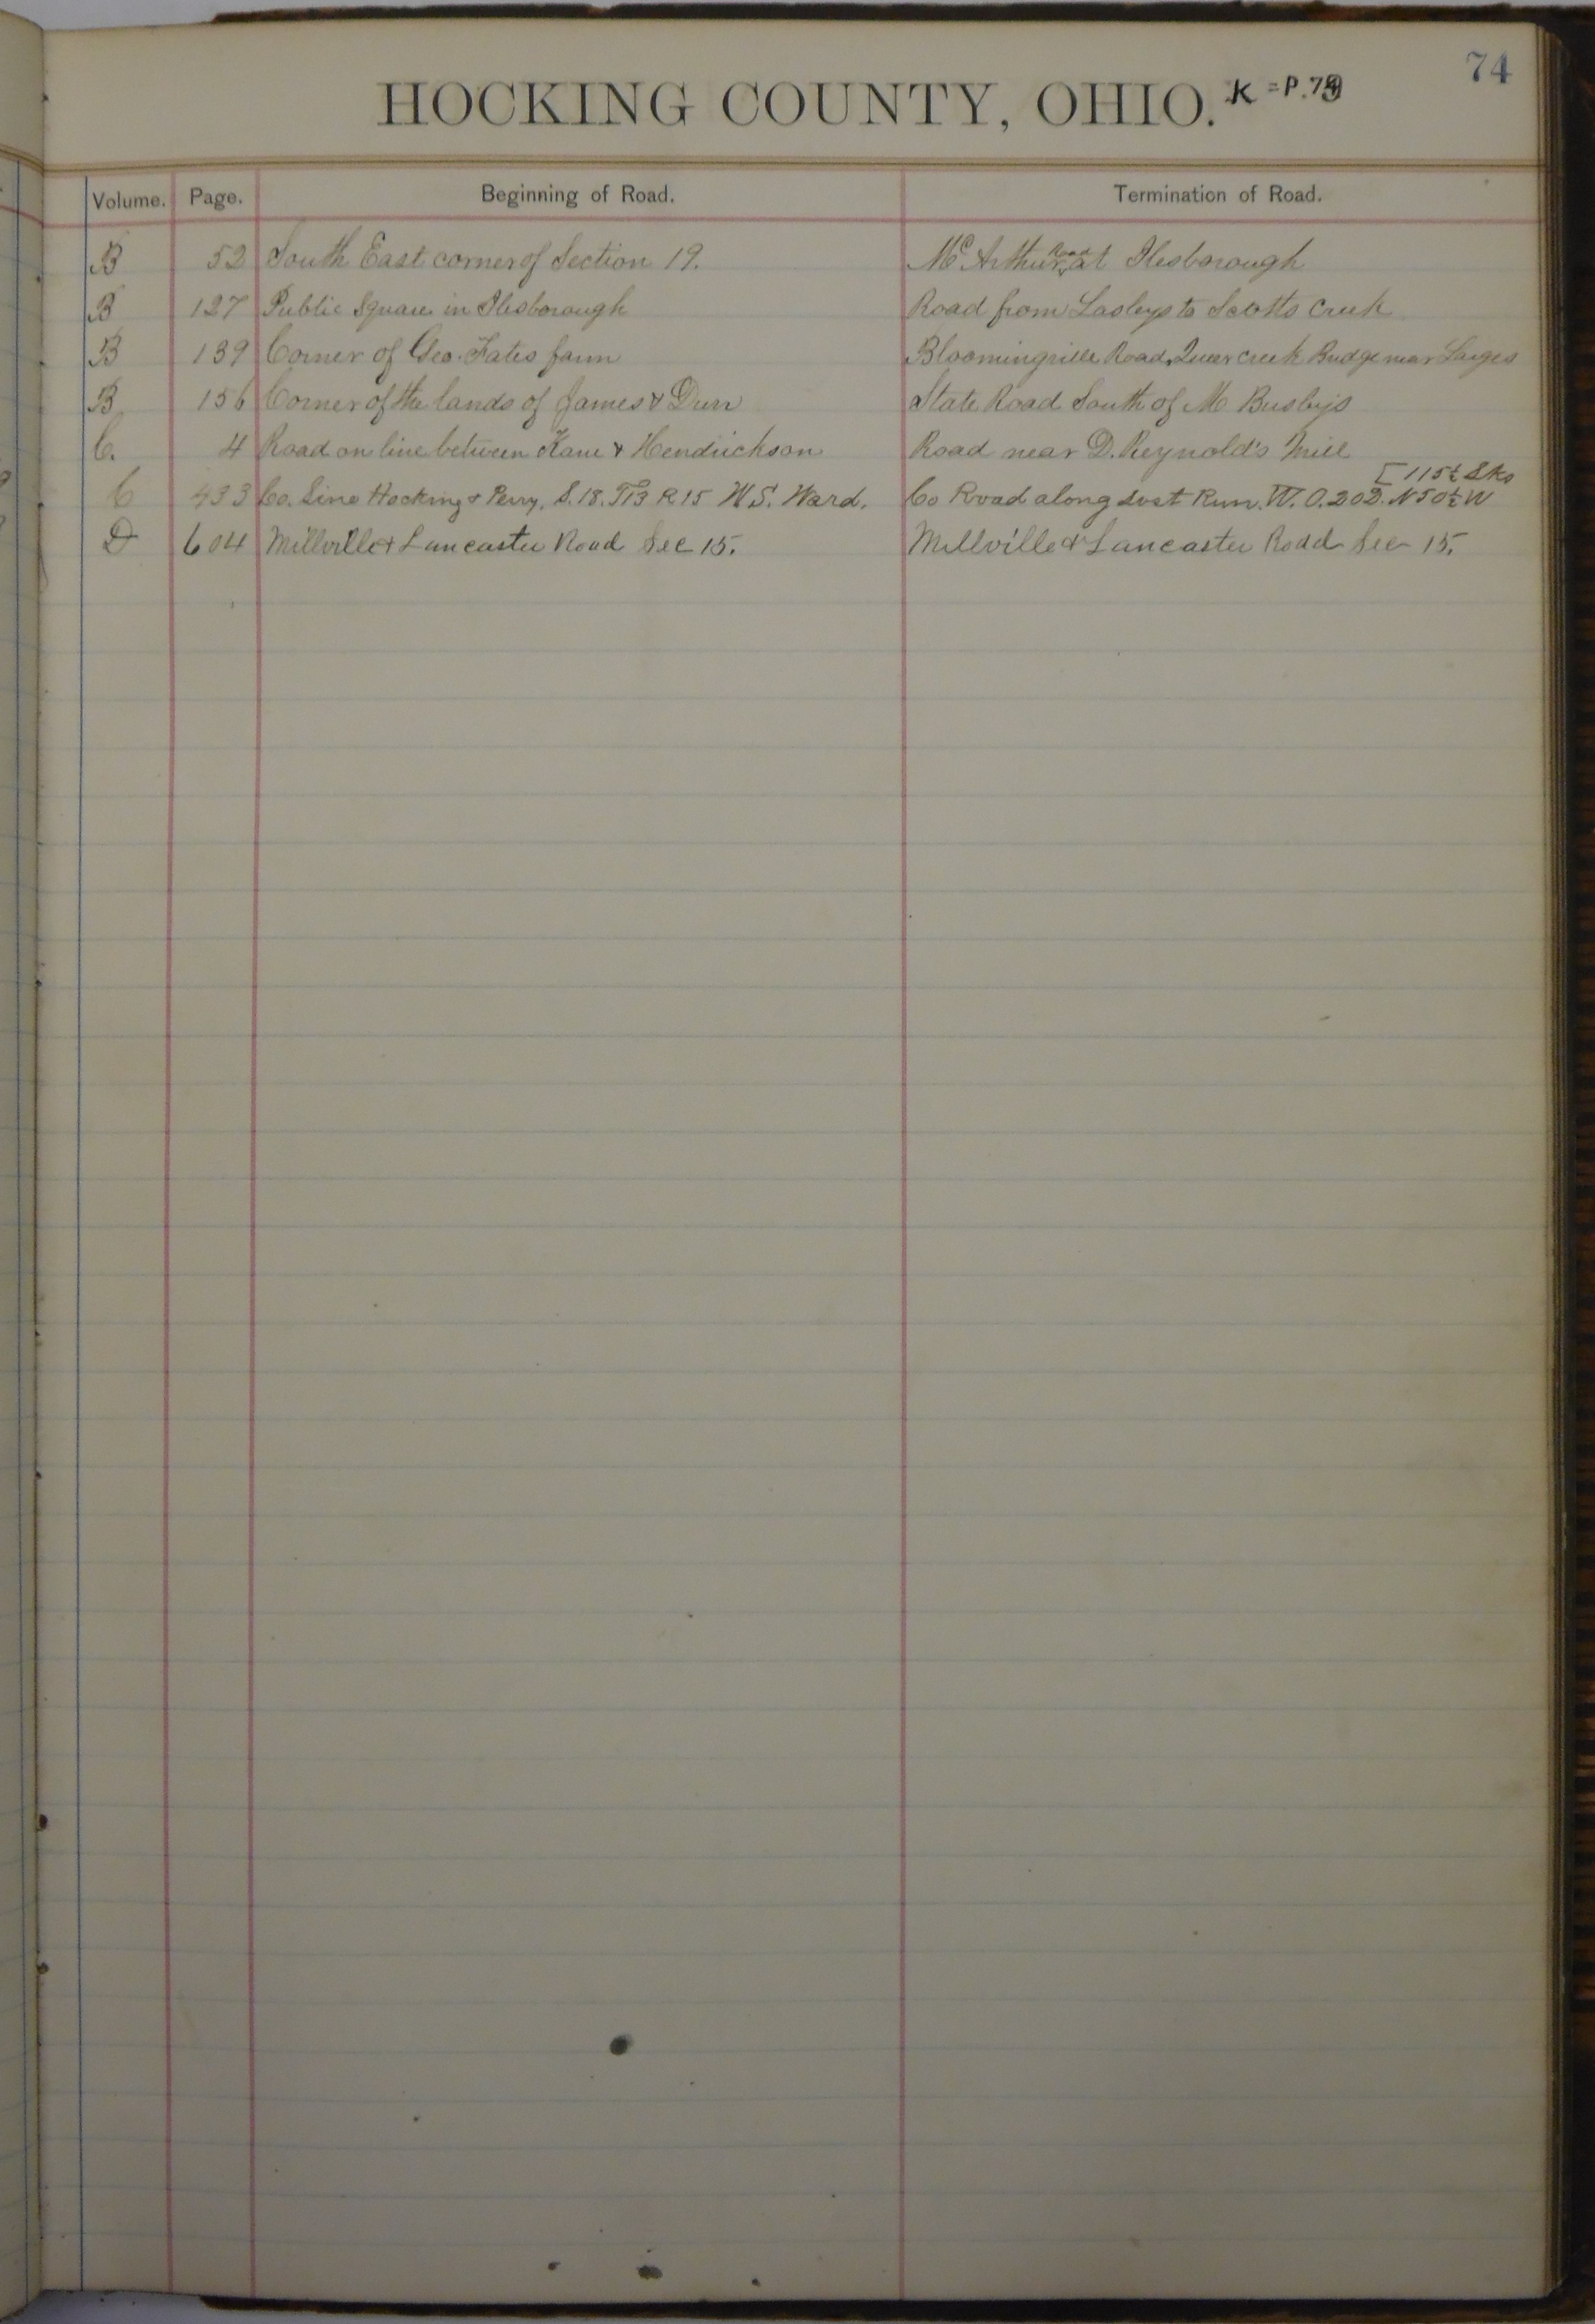 74
HOCKING COUNTY, OHIO. K = P.
Volume. Page. Beginning of Road. Termination of Road.
B 52 South East corner of Section 19. Mc Arthur Road at Ilesborough
B 127 Public Square in Ilesborough Road from Lasleys to Scotts Creek
B 139 Corner of Geo. Fates farm Bloomingville Road, Queer creek Bridge near Larges
B 156 Corner of the lands of James & Durr State Road South of M Busbys
C. 4 Road on line between Kane & Hendrickson Road near D. Reynold's Mill
[115½ Lks
C 433 Co. Line Hocking & Perry. S. 18. T13 R 15 W. S. Ward. Co Road along Lost Run. W. O. 20 D. N 50½ W
D 604 Millville & Lancaster Road Sec 15. Millville & Lancaster Road Sec 15.